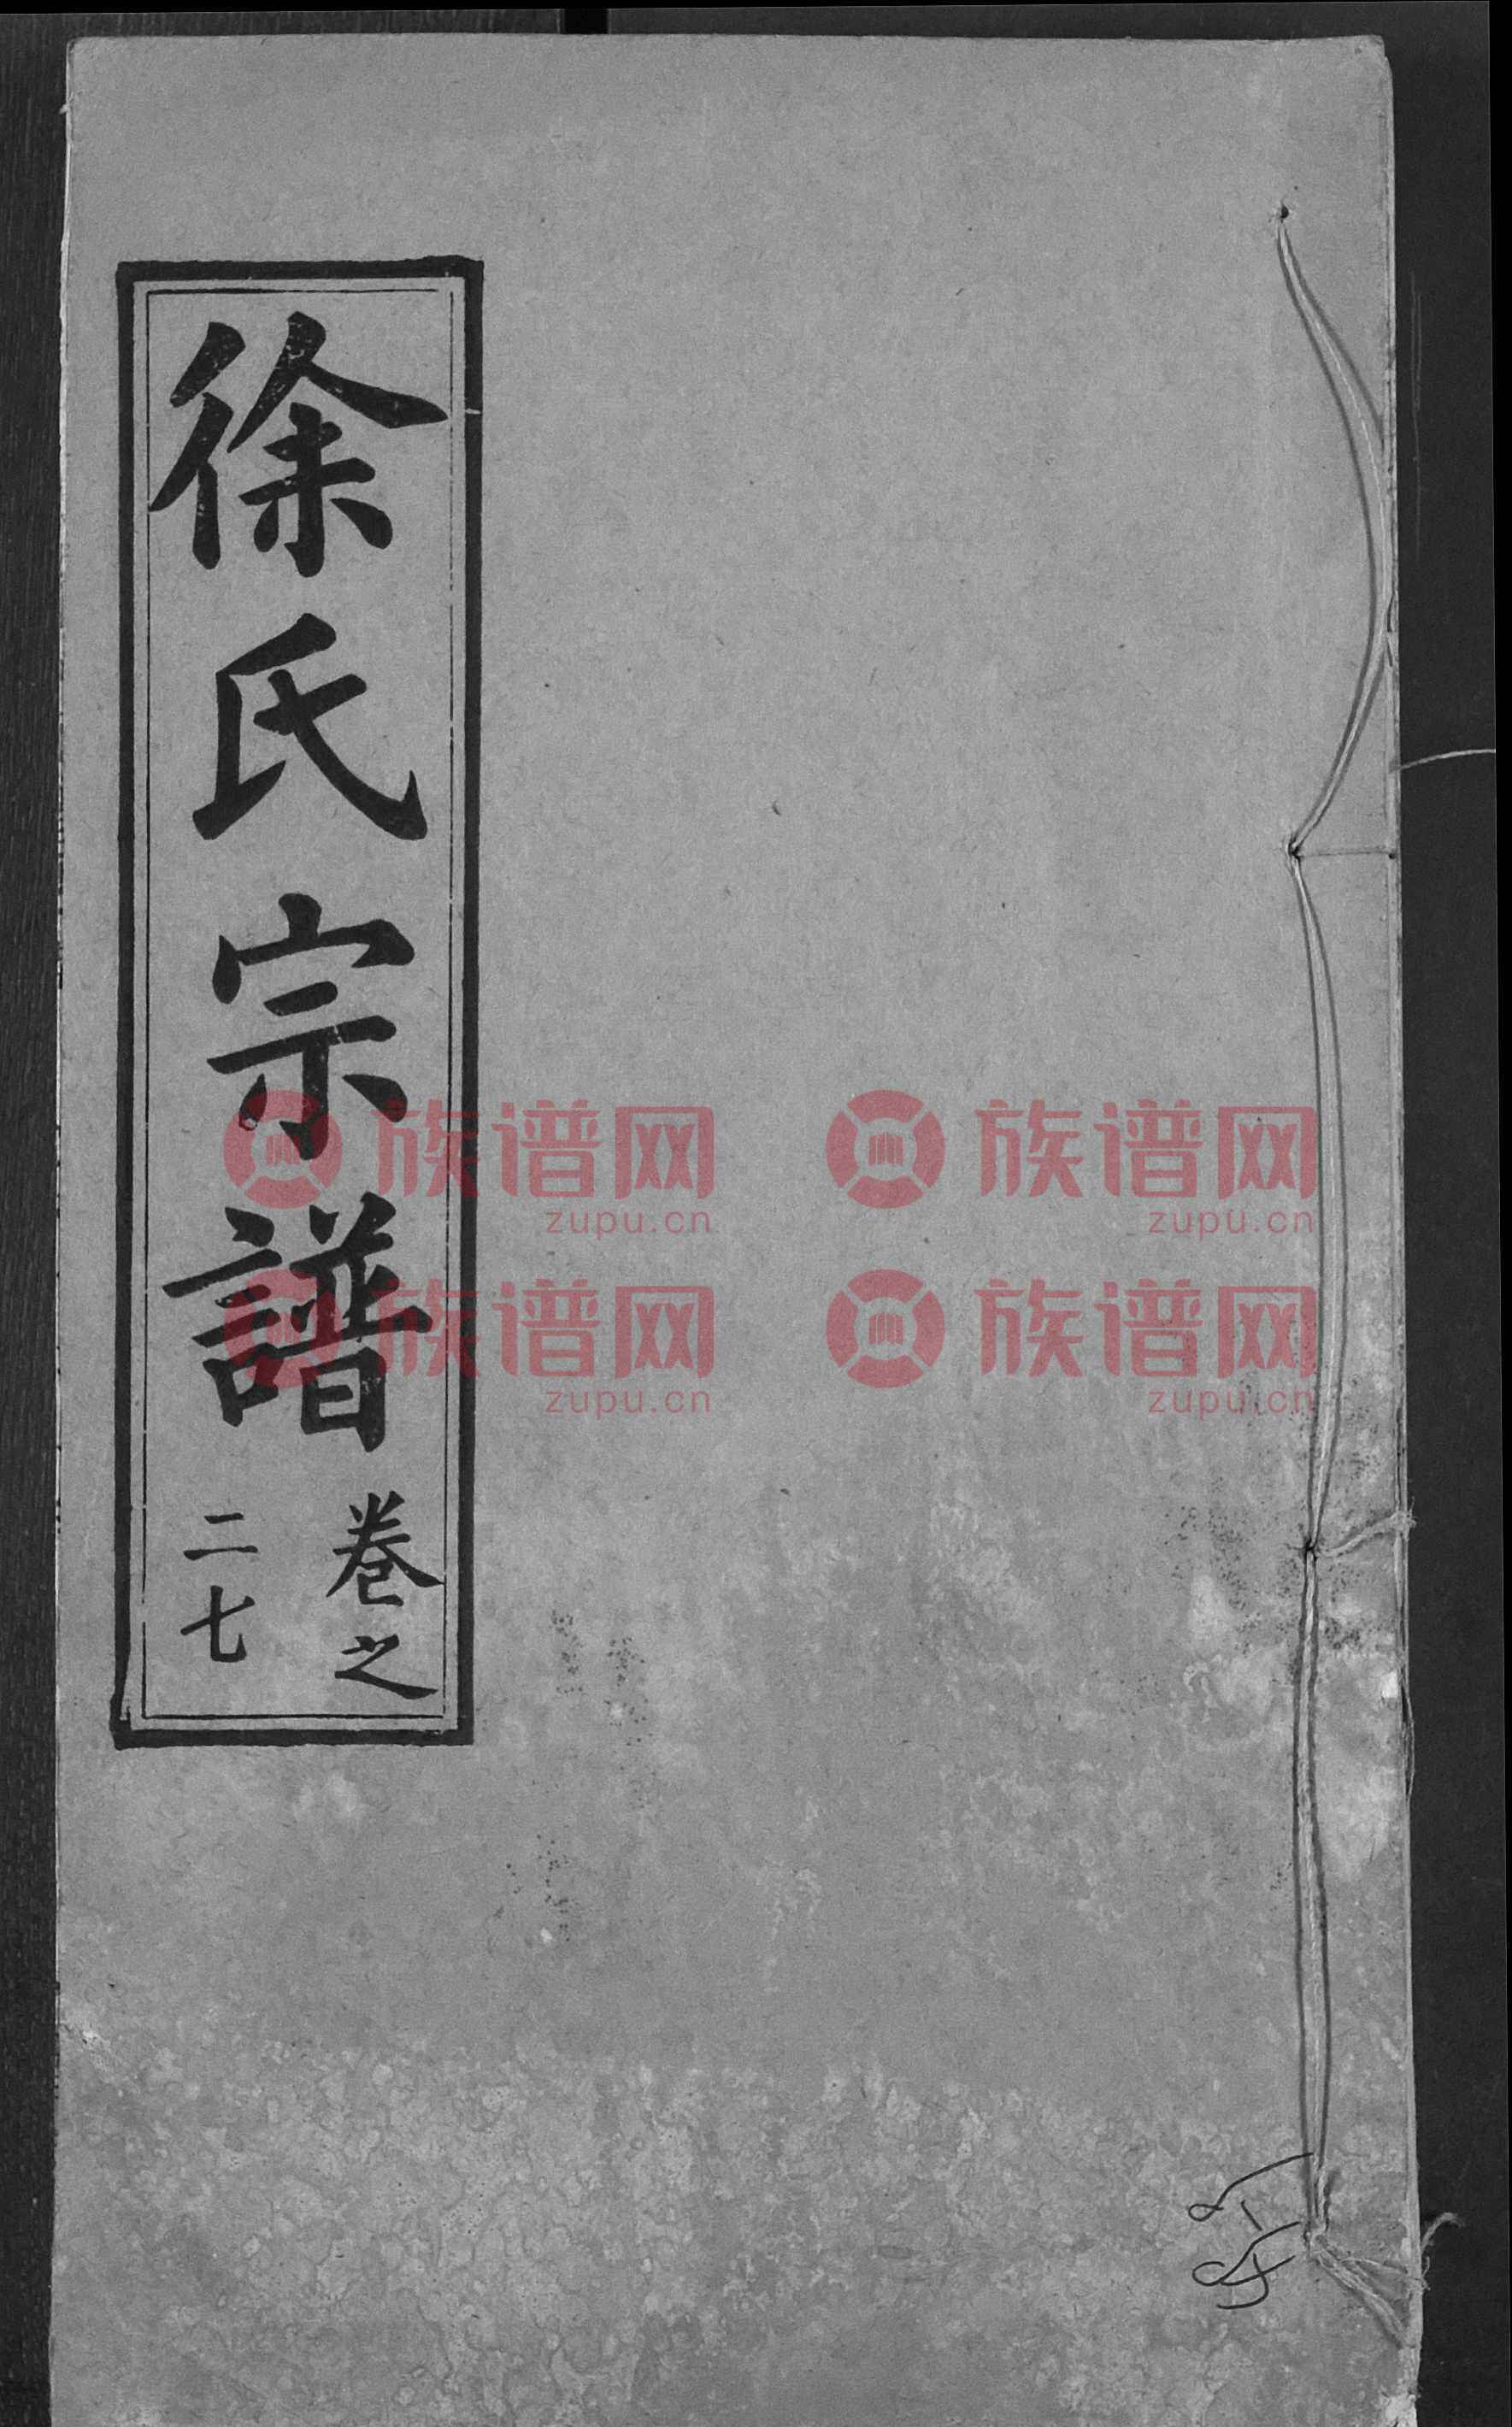 徐氏宗譜
卷之
二七
族谱网
zupu.cn
族谱网
zupu.cn
族谱网
zupu.cn
族谱网
zupu.cn